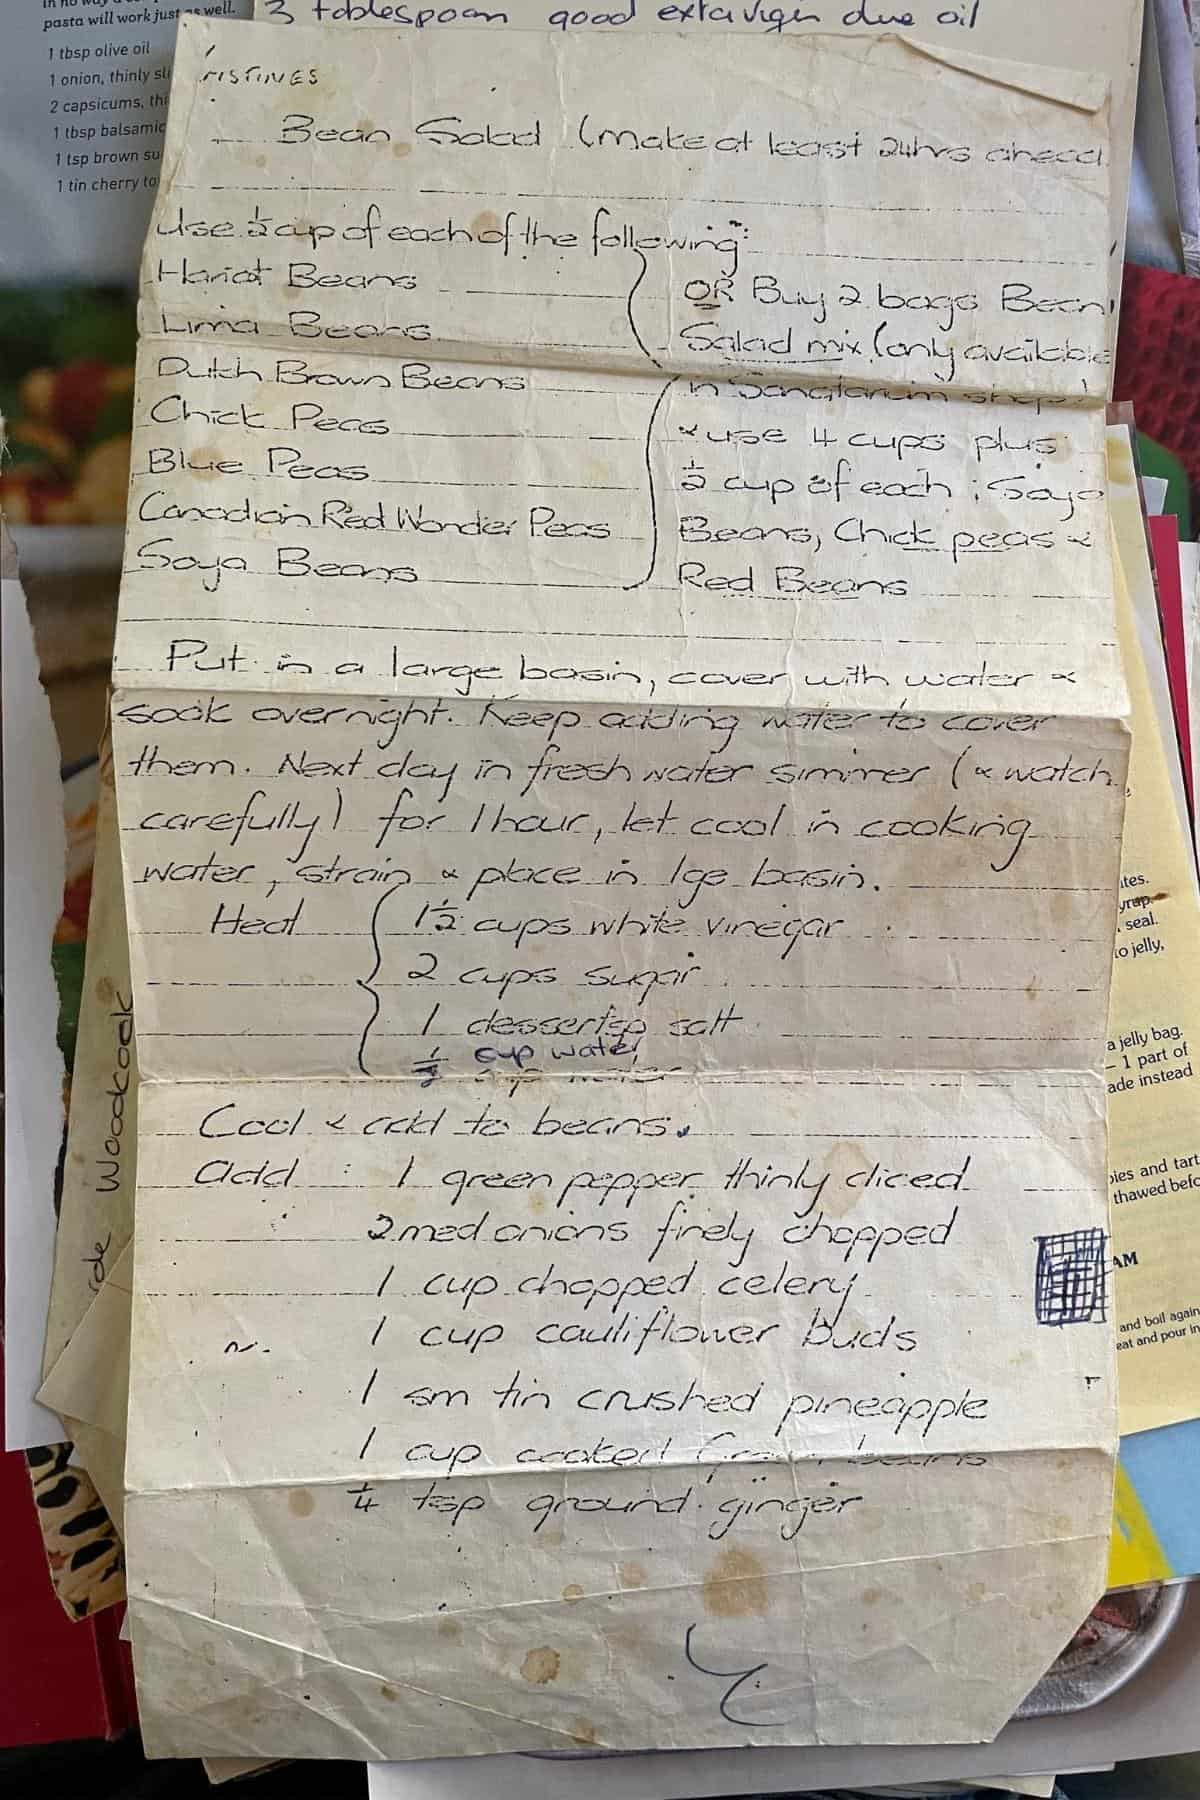 in no way a
pasta will work just as well.
1 tbsp olive oil
1 onion, thinly sli
2 capsicums, thi
1 tbsp balsamic
1 tsp brown su
1 tin cherry to
3 toblespoon good extavigin olive oil
ristines
Bean Salad (make at least 24hrs ahead
Use ½ cup of each of the following:
Hariot Beans
Lima Beans
Dutch Brown Beans
Chick Peas
Blue Peas
Canadian Red Wonder Peas
Soya Beans
OR Buy 2 bags Bean
Salad mix (only available
in Sanatarium shops)
& use 4 cups plus
½ cup of each ; Soya
Beans, Chick peas &
Red Beans
Put in a large basin, cover with water &
soak overnight. Keep adding water to cover
them. Next day in fresh water simmer (& watch
carefully) for 1 hour, let cool in cooking
water, strain & place in lge basin.
Heat
1½ cups white vinegar
2 cups sugar
1 dessertsp salt
cup water
cup water
Cool & add to beans.
add : 1 green pepper thinly diced
2 med onions finely chopped
1 cup chopped celery
1 cup cauliflower buds
1 sm tin crushed pineapple
1 cup cooked Green beans
¼ tsp ground ginger
Woodcock
ites.
yrup.
seal.
to jelly,
a jelly bag.
– 1 part of
ade instead
pies and tart
thawed befo
AM
and boil again
eat and pour in